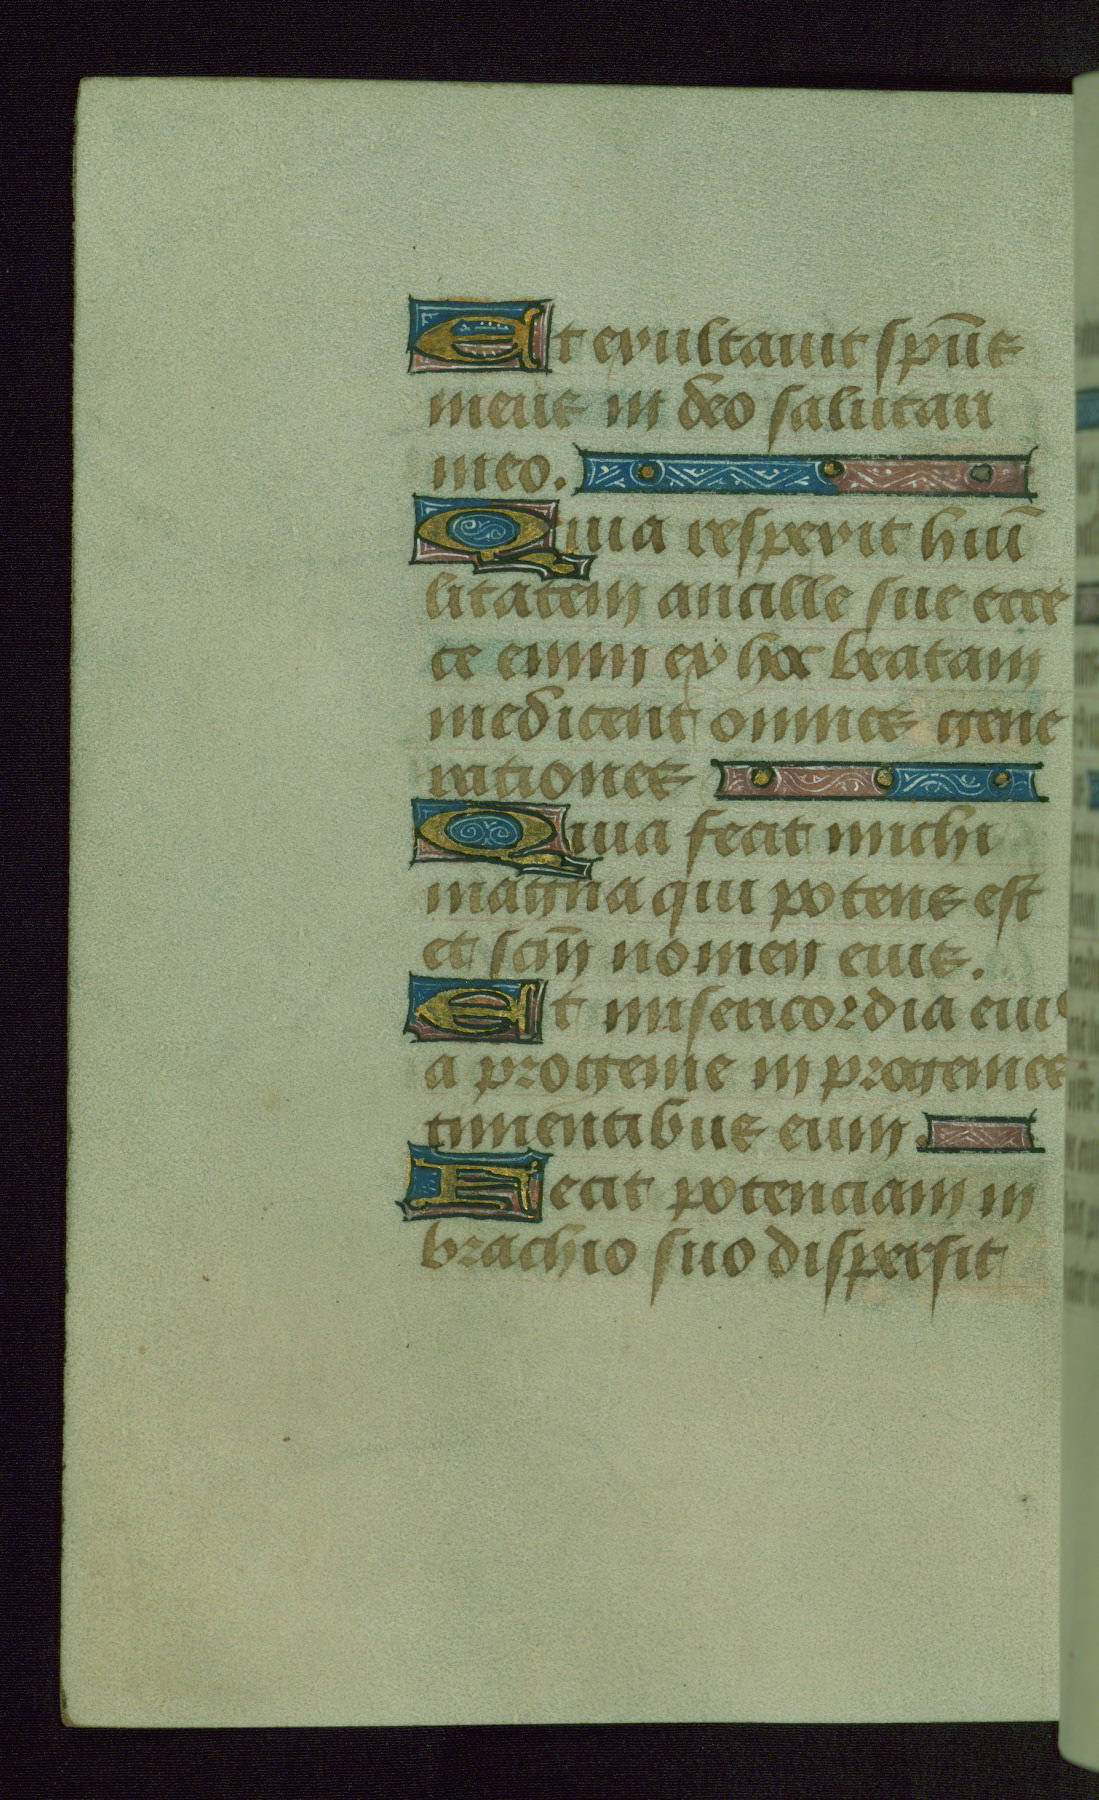 Et exultauit spūs
meus in deo salutari
meo.
Quia respexit hūi
litatem ancille sue ecce
ce enim ex hoc beatam
me dicent omnes gene
rationes
Quia fecit michi
magna qui potens est
et scm̄ nomen eius.
Et misericordia eius
a progenie in progenies
timentibus eum.
Fecit potenciam in
brachio suo dispersit